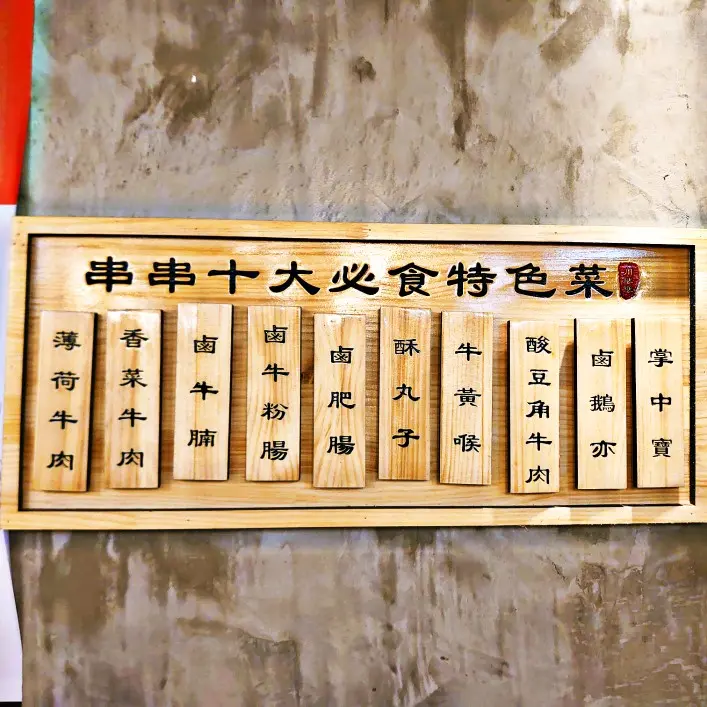 串串十大必食特色菜
薄荷牛肉
香菜牛肉
鹵牛腩
鹵牛粉腸
鹵肥腸
酥丸子
牛黃喉
酸豆角牛肉
鹵鵝亦
掌中寶